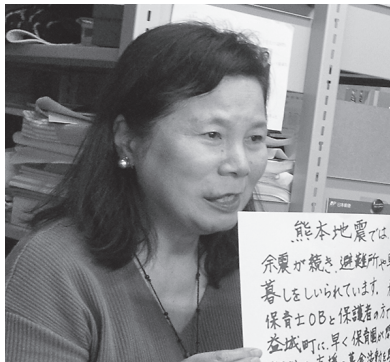 熊本地震では
余震が続き、避難所や
暮しをしいられています。
保育士OBと保護者の方
益城町に、早く保育園が